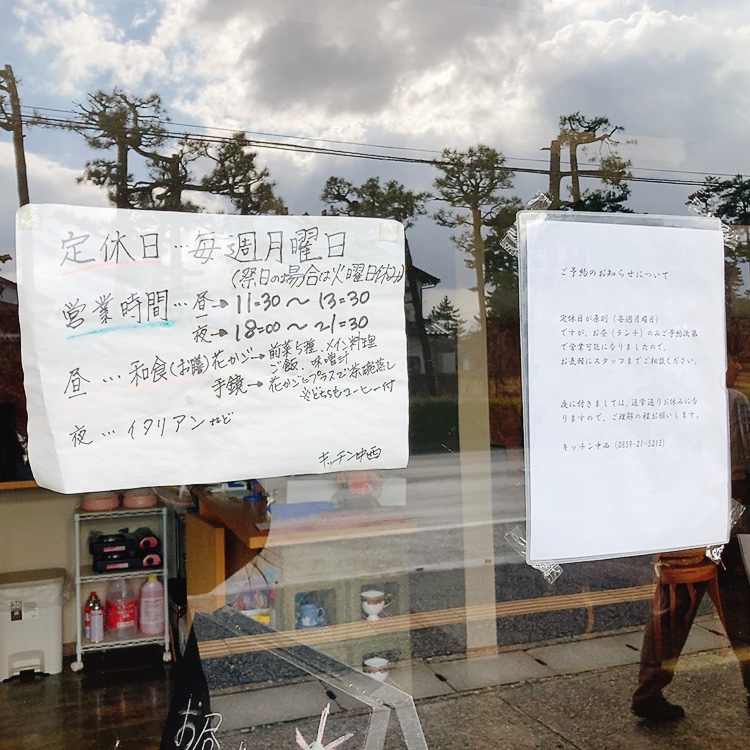 定休日…毎週月曜日
(祭日の場合は火曜日休み)
営業時間… 昼→11:30〜13:30
夜→18:00〜21:30
昼…和食(お膳)花かご→前菜5種、メイン料理
ご飯、味噌汁
手鏡→花かごにプラスで茶碗蒸し
※どちらもコーヒー付
夜…イタリアンなど
キッチン中西
ご予約のお知らせについて
定休日が原則(毎週月曜日)
ですが、お昼(ランチ)のみご予約次第
で営業可能になりましたので、
お気軽にスタッフまでご相談ください。
夜に付きましては、通常通りお休みにな
りますので、ご理解の程お願いします。
キッチン中西(0859-21-5215)
お昼